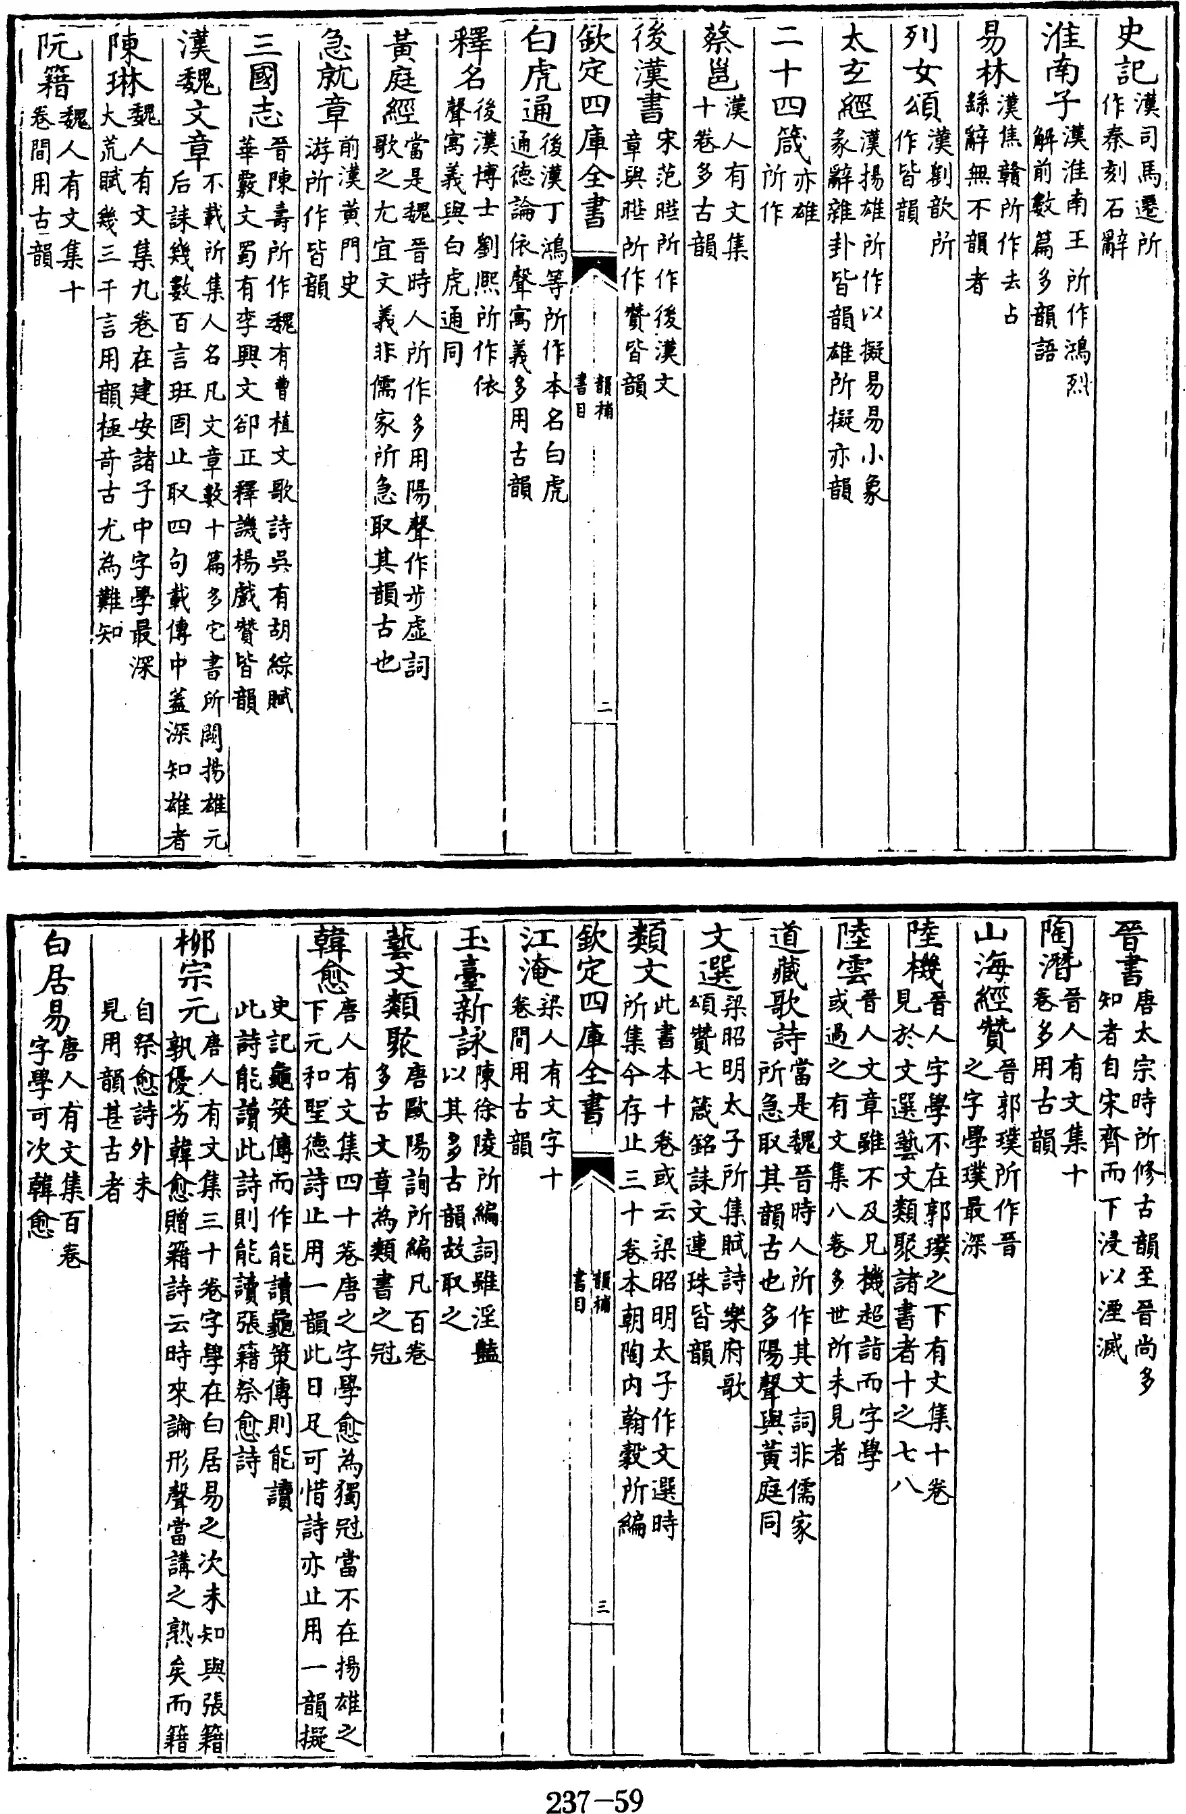 史記漢司馬遷所作秦刻石辭
淮南子漢淮南王所作鴻烈解前數篇多韻語
易林漢焦贛所作去占繇辭無不韻者
列女頌漢劉歆所作皆韻
太玄經漢揚雄所作以擬易易小象彖辭雜卦皆韻雄所擬亦韻
二十四箴亦雄所作
蔡邕漢人有文集十卷多古韻
後漢書宋范曄所作後漢文章與曄所作贊皆韻
欽定四庫全書 韻補書目 二
白虎通後漢丁鴻等所作本名白虎通德論依聲寓義多用古韻
釋名後漢博士劉熙所作依聲寓義與白虎通同
黃庭經當是魏晉時人所作多用陽聲作步虛詞歌之尤宜文義非儒家所急取其韻古也
急就章前漢黃門史游所作皆韻
三國志晉陳壽所作魏有曹植文歌詩吳有胡綜賦華覈文蜀有李興文郤正釋譏楊戲贊皆韻
漢魏文章不載所集人名凡文章數十篇多它書所闕揚雄元后誄幾數百言班固止取四句載傳中蓋深知雄者
陳琳魏人有文集九卷在建安諸子中字學最深大荒賦幾三千言用韻極奇古尤為難知
阮籍魏人有文集十卷間用古韻
晉書唐太宗時所修古韻至晉尚多知者自宋齊而下浸以湮滅
陶潛晉人有文集十卷多用古韻
山海經贊晉郭璞所作晉之字學璞最深
陸機晉人字學不在郭璞之下有文集十卷見於文選藝文類聚諸書者十之七八
陸雲晉人文章雖不及兄機超詣而字學或過之有文集八卷多世所未見者
道藏歌詩當是魏晉時人所作其文詞非儒家所急取其韻古也多陽聲與黃庭同
文選梁昭明太子所集賦詩樂府歌頌贊七箴銘誄文連珠皆韻
類文此書本十卷或云梁昭明太子作文選時所集今存止三十卷本朝陶內翰穀所編
欽定四庫全書 韻補書目 三
江淹梁人有文字十卷間用古韻
玉臺新詠陳徐陵所編詞雖淫豔以其多古韻故取之
藝文類聚唐歐陽詢所編凡百卷多古文章為類書之冠
韓愈唐人有文集四十卷唐之字學愈為獨冠當不在揚雄之下元和聖德詩止用一韻此日足可惜詩亦止用一韻擬
史記龜筴傳而作能讀龜策傳則能讀此詩能讀此詩則能讀張籍祭愈詩
柳宗元唐人有文集三十卷字學在白居易之次未知與張籍孰優劣韓愈贈籍詩云時來論形聲當講之熟矣而籍
自祭愈詩外未見用韻甚古者
白居易唐人有文集百卷字學可次韓愈
237-59